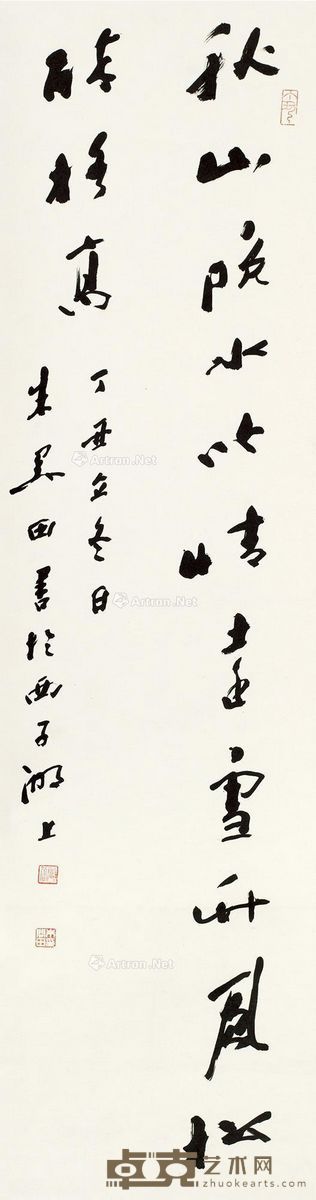 秋山晚水吟情遠雪竹風松
醉格高
丁丑立冬日
朱关田書於西子湖上
Artron.Net
Artron.Net
Artron.Net
卓克艺术网
zhuokearts.com